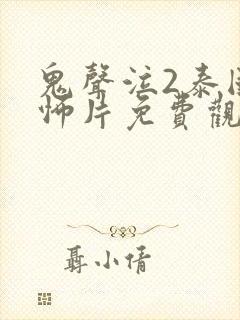 鬼聲泣2泰
怖片免費觀
聶小倩